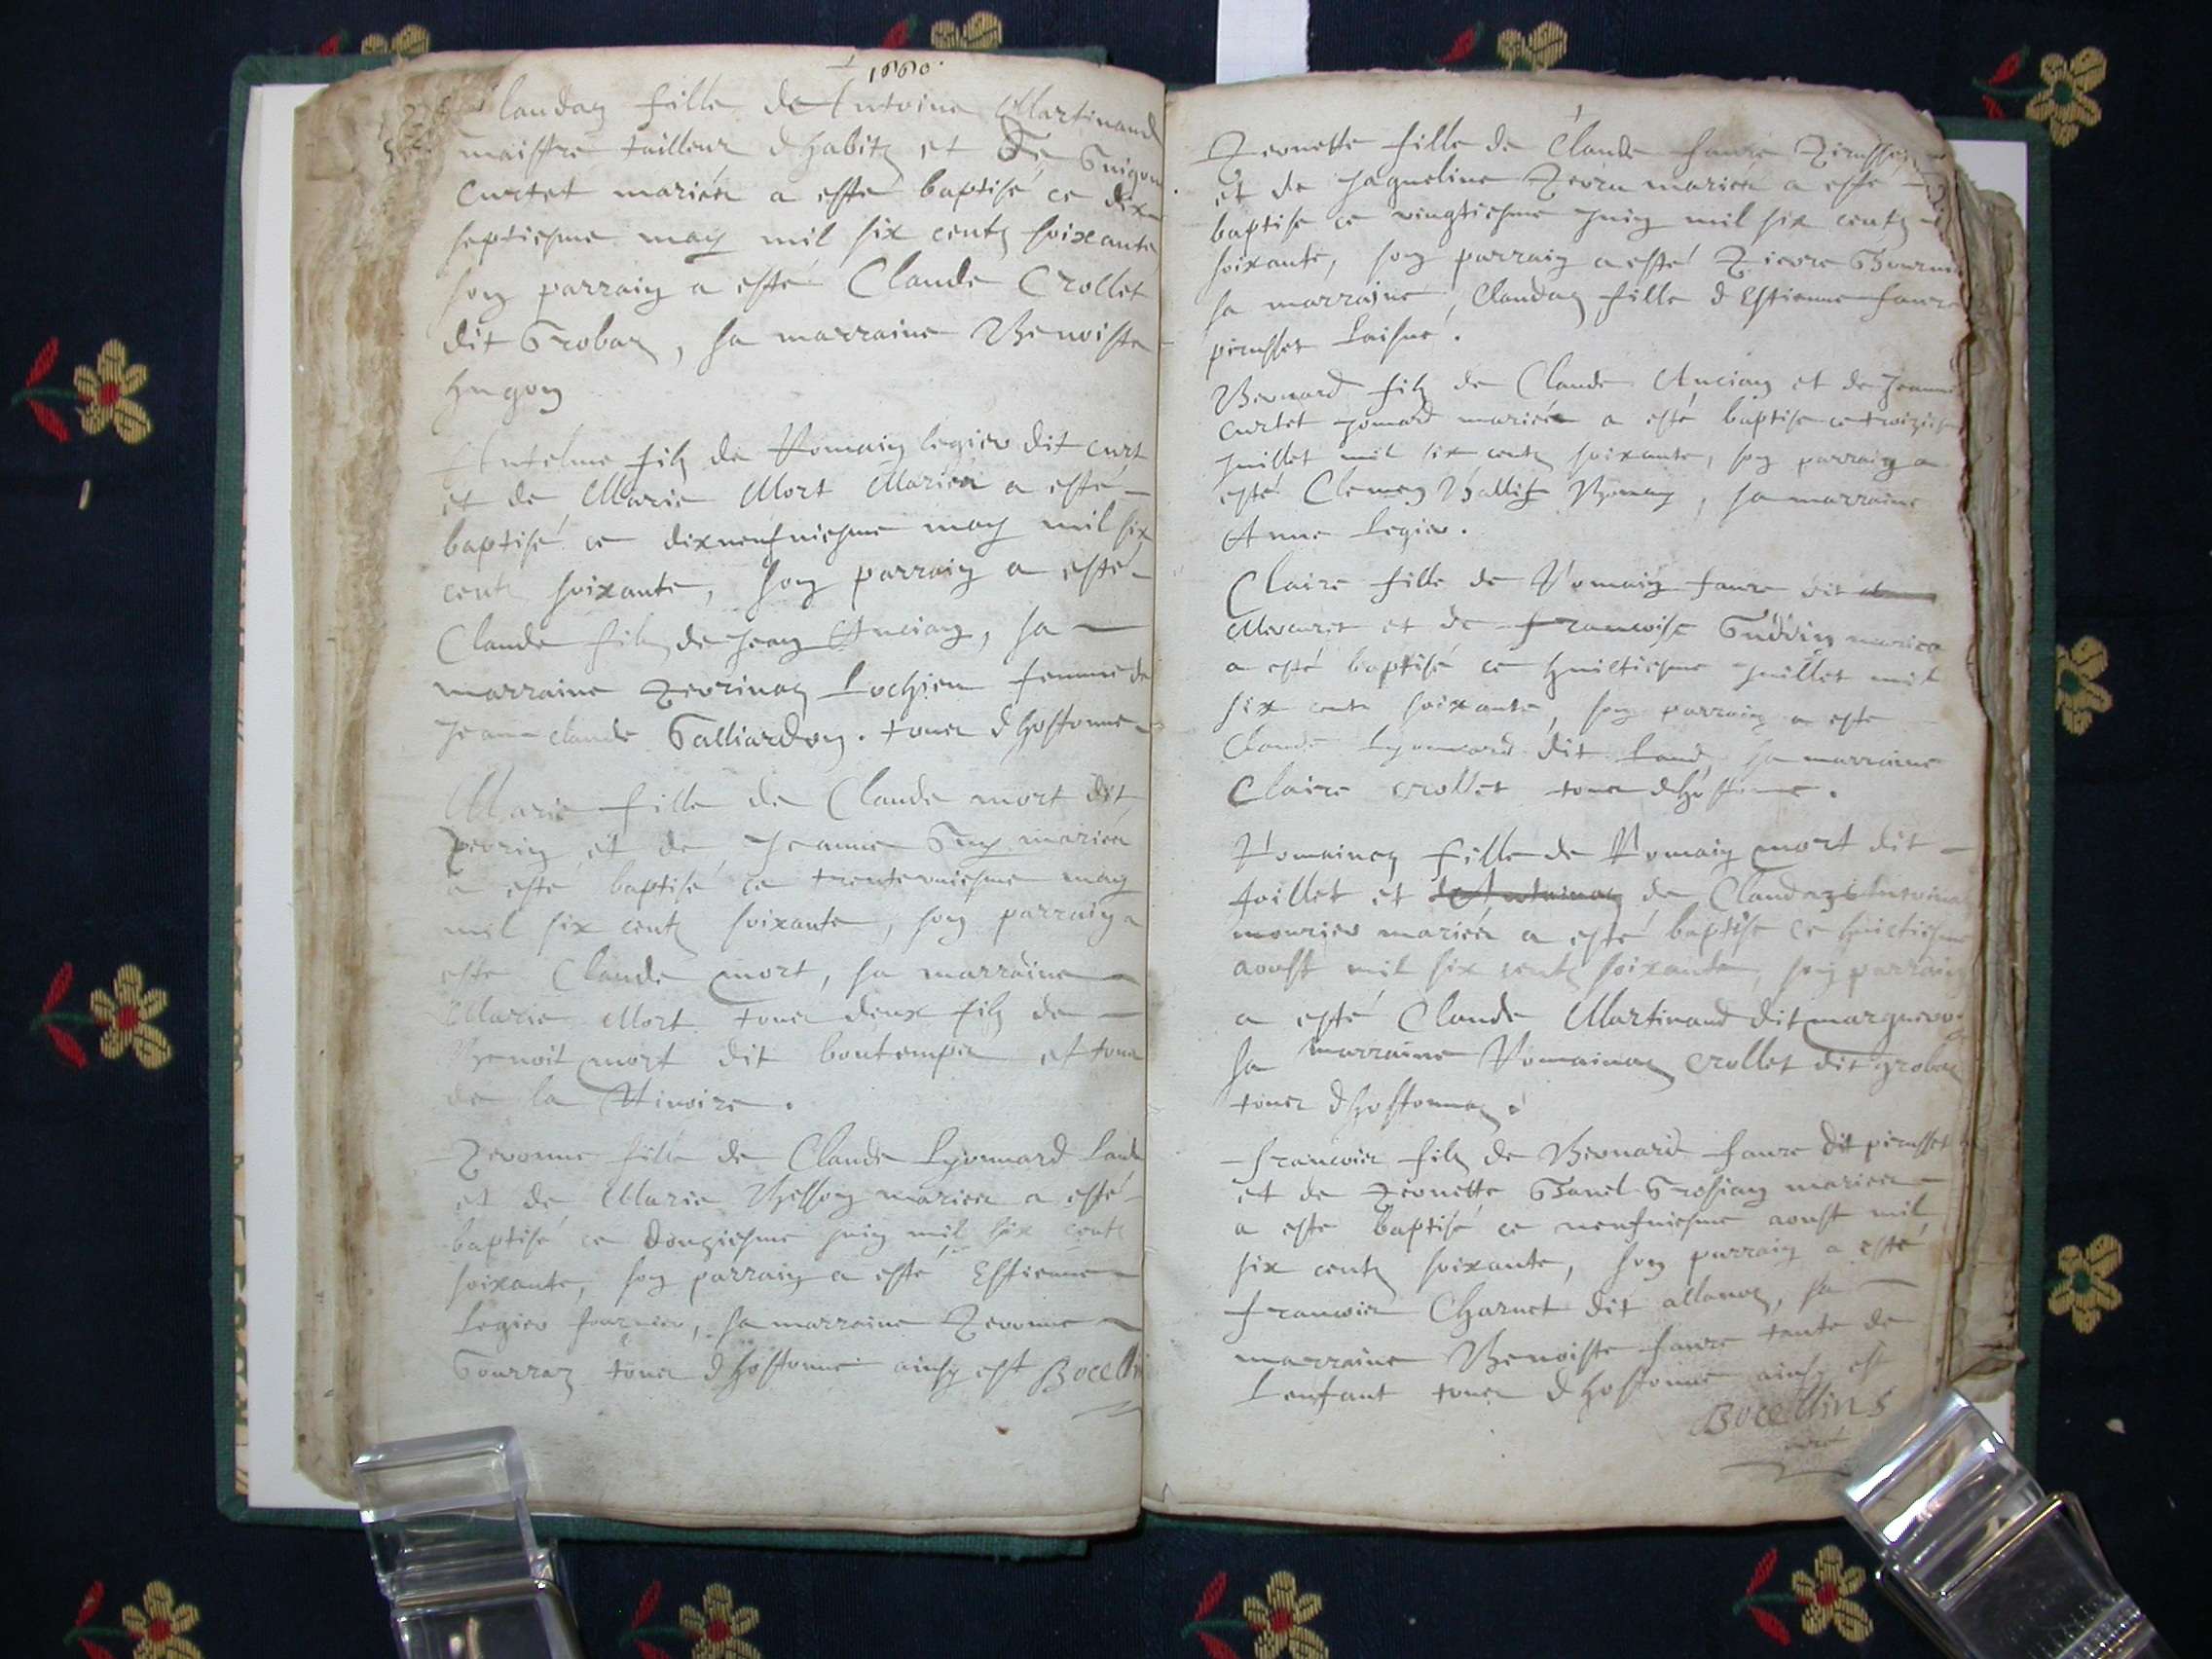 1660.
Claudaz fille de Antoine Martinand
maistre tailleur d habitz et de Guigon
Curtet mariés a esté baptisé ce dix
septiesme may mil six centz soixante
son parrain a esté Claude Crollet
dit Grobaz, sa marraine Benoiste
hugon
Antelme filz de Romain legier dit curt
et de Marie Mort Mariés a esté
baptisé ce dixneufviesme may mil six
centz soixante, son parrain a esté
Claude filz de Jean Ancian, sa
marraine Perrinaz Lochieu femme de
Jean claude Galliardon. tous d hostonne
Marie fille de Claude mort dit
perrin et de Jeanne Guy mariés
a esté baptisé ce trenteuniesme may
mil six centz soixante, son parrain a
esté Claude mort, sa marraine
Marie Mort tous deux filz de
Benoit mort dit bontemps et tous
de la
Pevonne fille de Claude Lyonnard Laude
et de Marie Besson mariés a esté
baptisé ce douziesme juin mil six centz
soixante, son parrain a esté Estienne
Legier fournier, sa marraine Pevonne
Gourraz tous d hostonne ainsy est Bocellin
Pernette fille de Claude faure Pirasset
et de Jaqueline mariés a esté
baptisé ce vingtiesme juin mil six centz
soixante, son parrain a esté Pierre
sa marraine, Claudaz fille d Estienne faure
pirasset Laisné.
Bernard filz de Claude Ancian et de Jeanne
curtet jomard mariés a esté baptisé ce
juillet mil six centz soixante, son parrain a
esté Clemen, sa marraine
Anne Legier.
Claire fille de Romain faure dit
Mercuret et de francoise Guddin mariés
a esté baptisé ce huictiesme juillet mil
six centz soixante, son parrain a esté
Claude Lyonnard dit Laude, sa marraine
Claire crollet tous d hostonne.
Romainaz fille de Romain mort dit
foillet et de Antoinaz de Claudaz Antoinaz
mourier mariés a esté baptisé ce huictiesme
aoust mil six centz soixante, son parrain
a esté Claude Martinand dit
sa marraine Romainaz crollet dit grobaz
tous d hostonnaz.
francois filz de Bernard faure dit pirasset
et de Pernette Grosjean mariés
a esté baptisé ce neufviesme aoust mil
six centz soixante, son parrain a esté
francois Charnet dit allanoz, sa
marraine Benoiste faure tante de
L enfant tous d hostonne ainsy est
Bocellins
curé